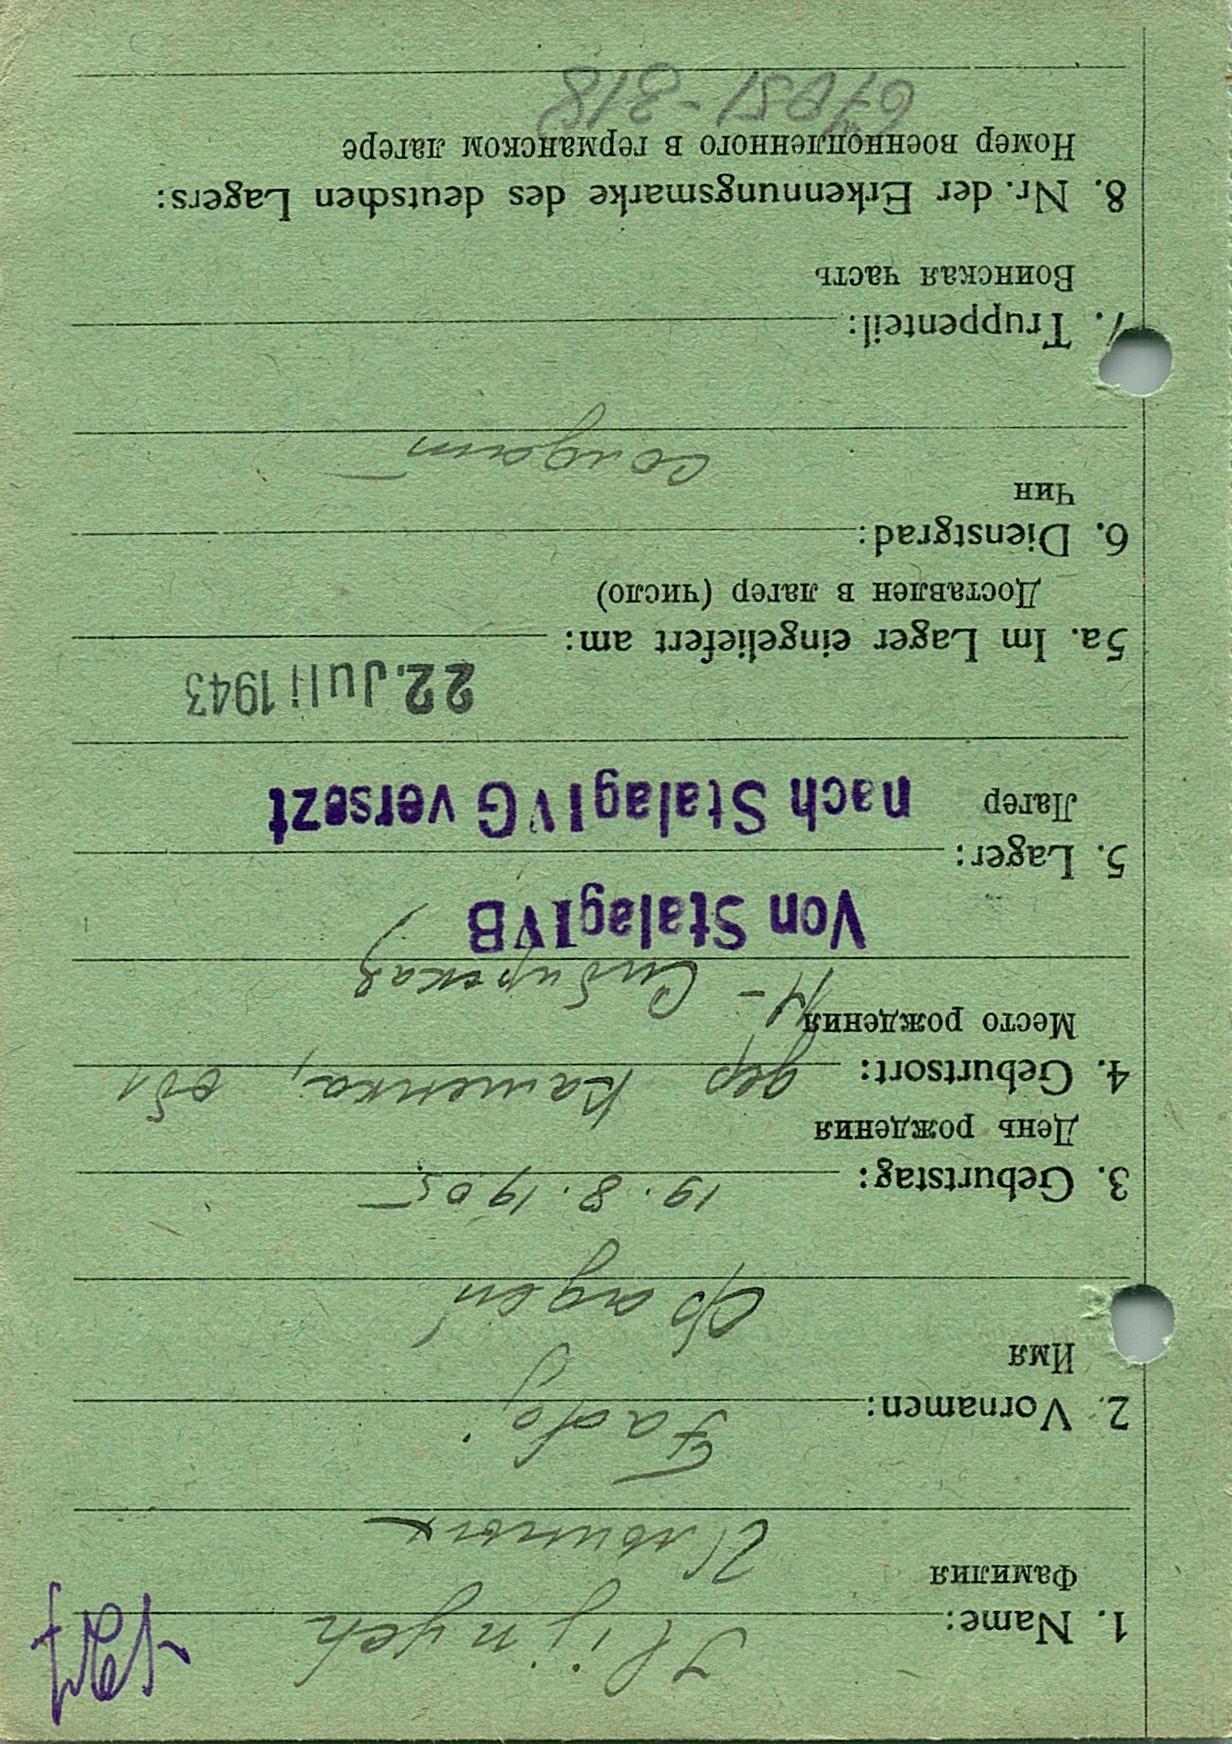 1. Name: Iljnych
Фамилия Ильиных
2. Vornamen: Fadj
Имя
Фадей
3. Geburtstag: 19.8.1905
День рождения
4. Geburtsort: дер Каменка, обл
Место рождения Н-Сибирская
Von Stalag IV B
5. Lager:
Лагер nach Stalag IV G versezt
22. Juli 1943
5a. Im Lager eingeliefert am:
Доставлен в лагер (число)
6. Dienstgrad:
Чин
солдат
7. Truppenteil:
Воинская часть
8. Nr. der Erkennungsmarke des deutschen Lagers:
Номер военнопленного в германском лагере
-318